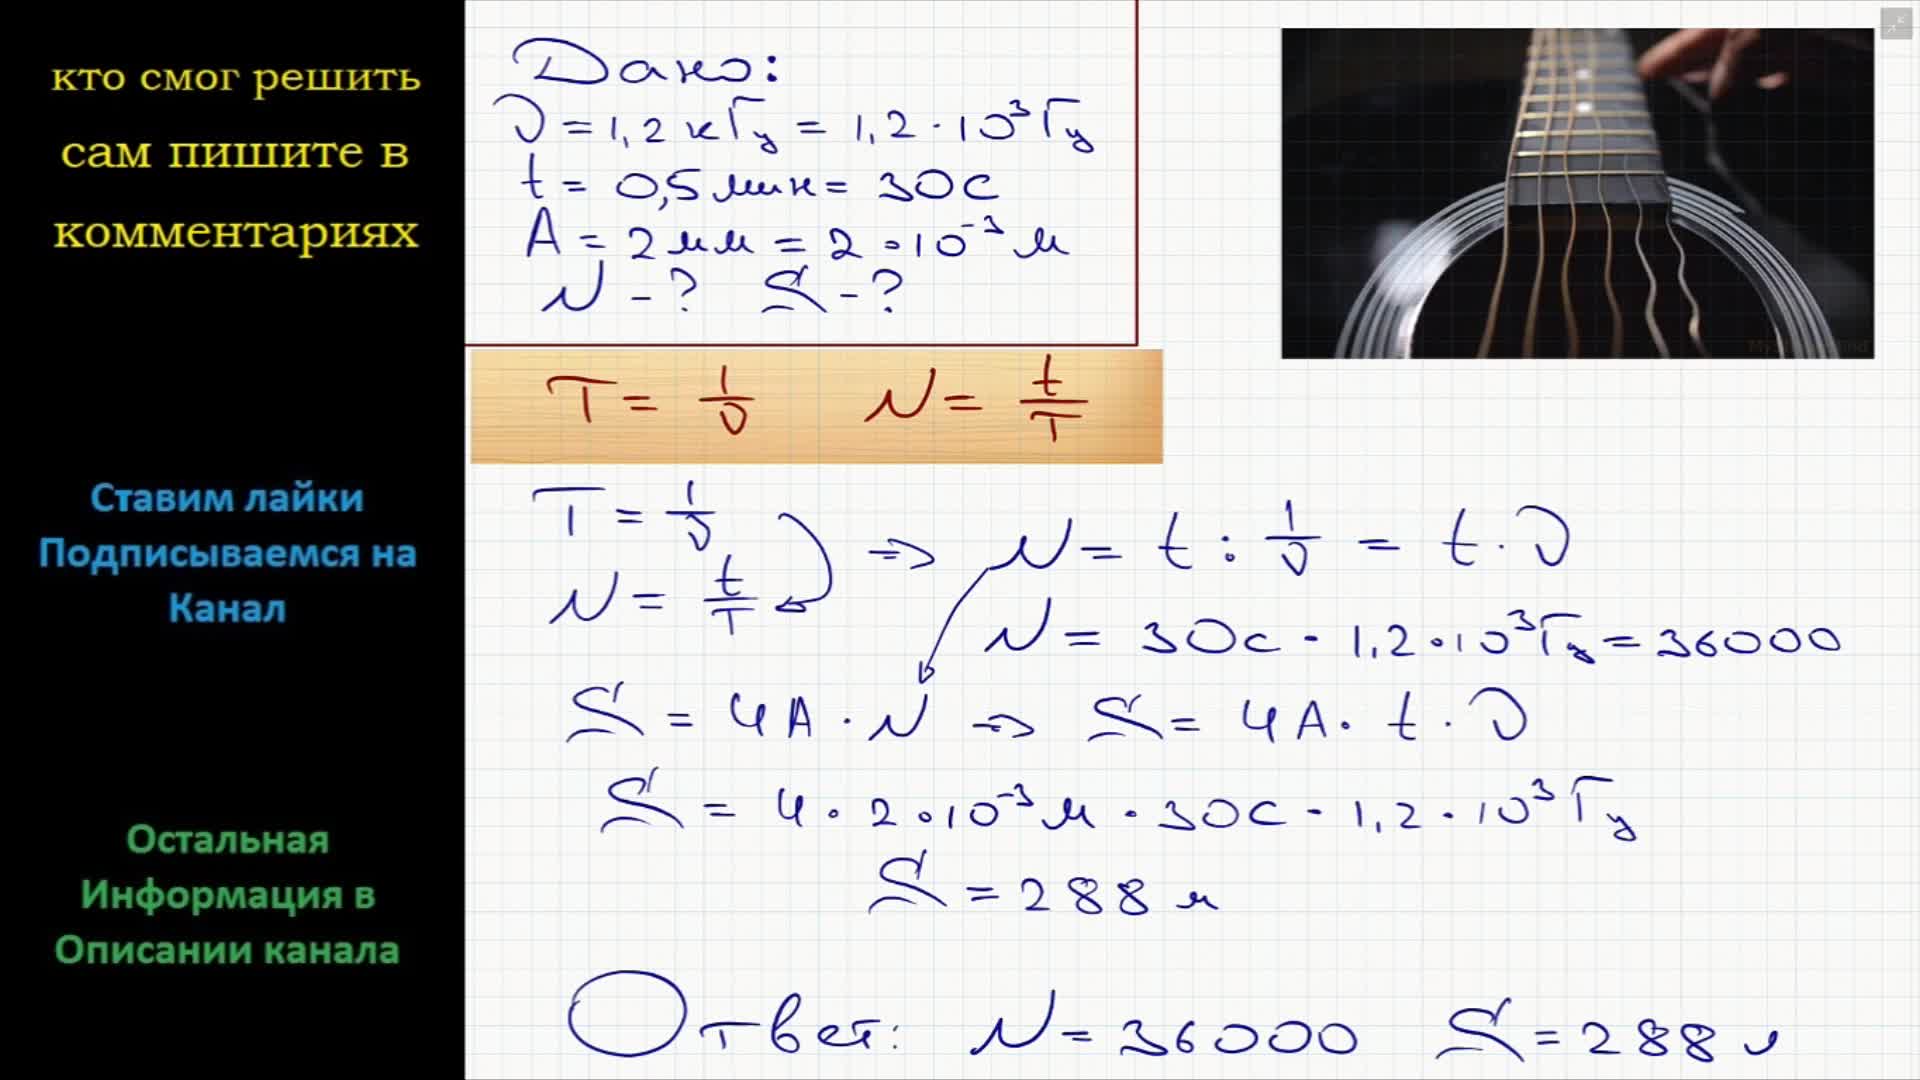 кто смог решить
сам пишите в
комментариях
Ставим лайки
Подписываемся на
Канал
Остальная
Информация в
Описании канала
Дано:
ν = 1,2 кГц = 1,2 · 10³ Гц
t = 0,5 мин = 30 с
A = 2 мм = 2 · 10⁻³ м
N - ? S - ?
T = 1/ν N = t/T
T = 1/ν
N = t/T ⇒ N = t : 1/ν = t · ν
N = 30 с · 1,2 · 10³ Гц = 36000
S = 4A · N ⇒ S = 4A · t · ν
S = 4 · 2 · 10⁻³ м · 30 с · 1,2 · 10³ Гц
S = 288 м
Ответ: N = 36000 S = 288 м